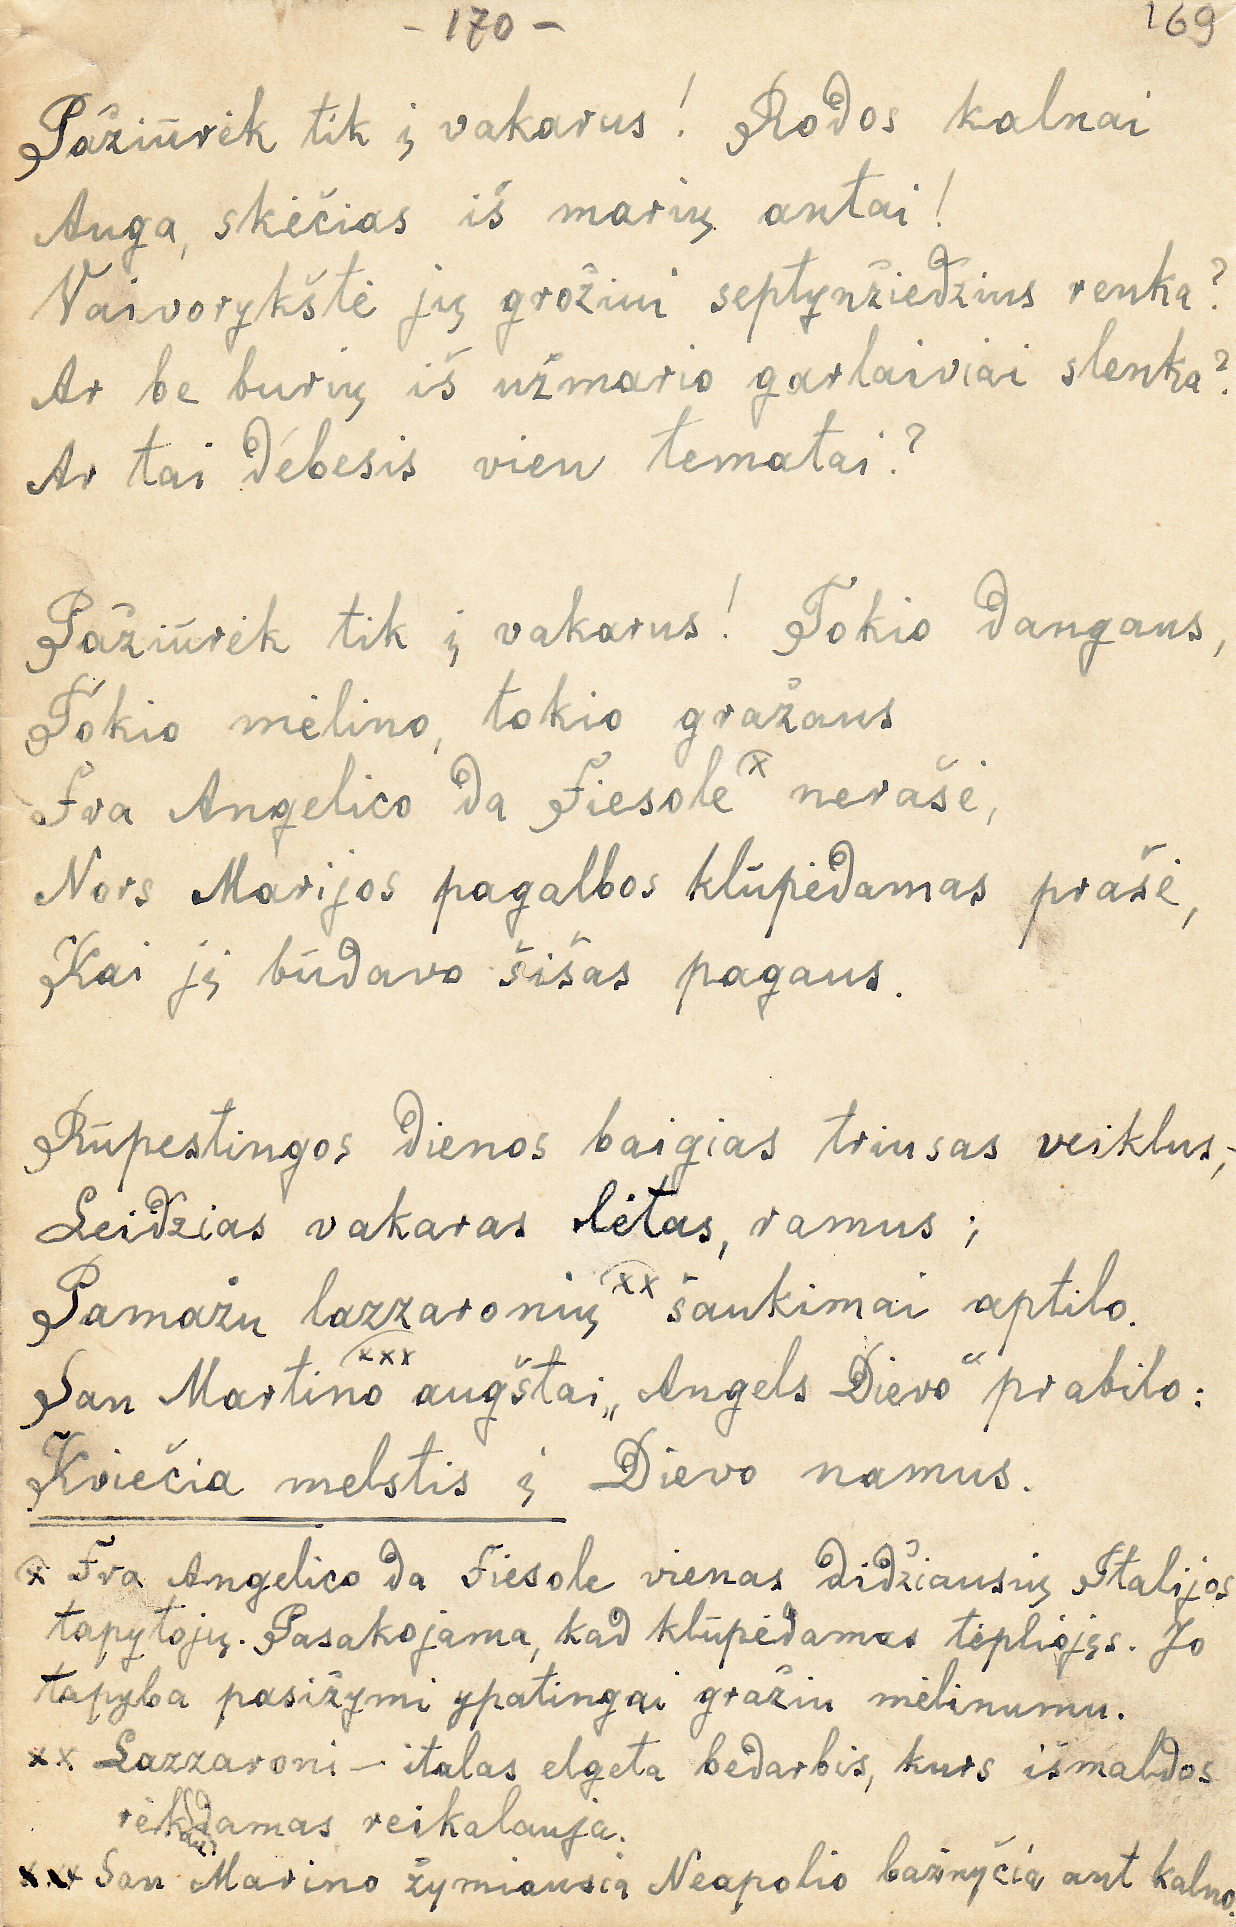 - 170 -
169
Pažiūrėk tik į vakarus! Rodos kalnai
Auga, skėčias iš marių antai!
Vaivorykštė jų grožiui septynžiedžius renka?
Ar be burių iš užmario garlaiviai slenka?
Ar tai debesis vien tematai?
Pažiūrėk tik į vakarus! Tokio dangaus,
Tokio mėlino, tokio gražaus
Fra Angelico da Fiesole x nerašė,
Nors Marijos pagalbos klūpėdamas prašė,
Kai jį būdavo šišas pagaus.
Rūpestingos dienos baigias triusas veiklus,
Leidžias vakaras lėtas, ramus;
Pamažu lazzaronių xx šaukimai aptilo.
San Martino xxx augštai „Angels Dievo“ prabilo:
Kviečia melstis į Dievo namus.
x Fra Angelico da Fiesole vienas didžiausių Italijos
tapytojų. Pasakojama, kad klūpėdamas tėpliojęs. Jo
tapyba pasižymi ypatingai gražiu mėlinumu.
xx Lazzaroni - italas elgeta bedarbis, kurs išmaldos
rėkdamas reikalauja.
xxx San Marino žymiausia Neapolio bažnyčia ant kalno.